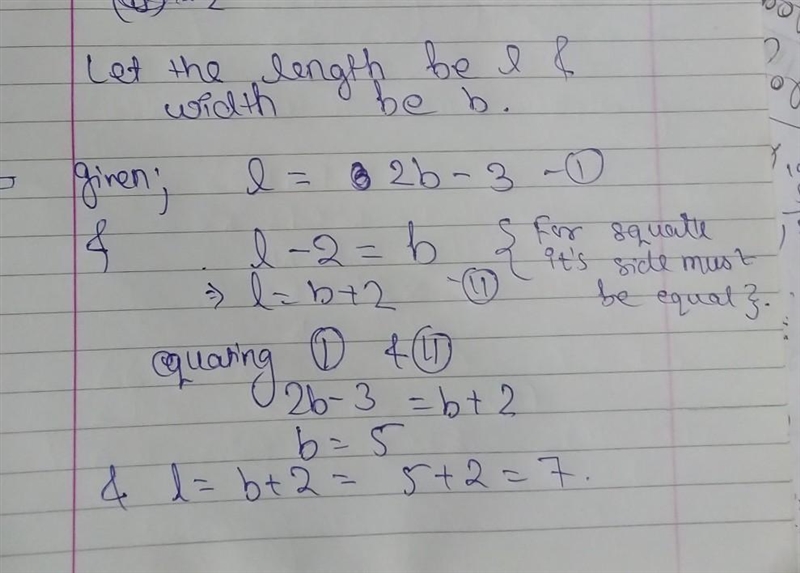 Let the length be l &
width be b.
given; l = 2b - 3 - (I)
& l - 2 = b { For square
it's side must
be equal }.
⇒ l = b + 2 - (II)
equaring (I) & (II)
2b - 3 = b + 2
b = 5
& l = b + 2 = 5 + 2 = 7.